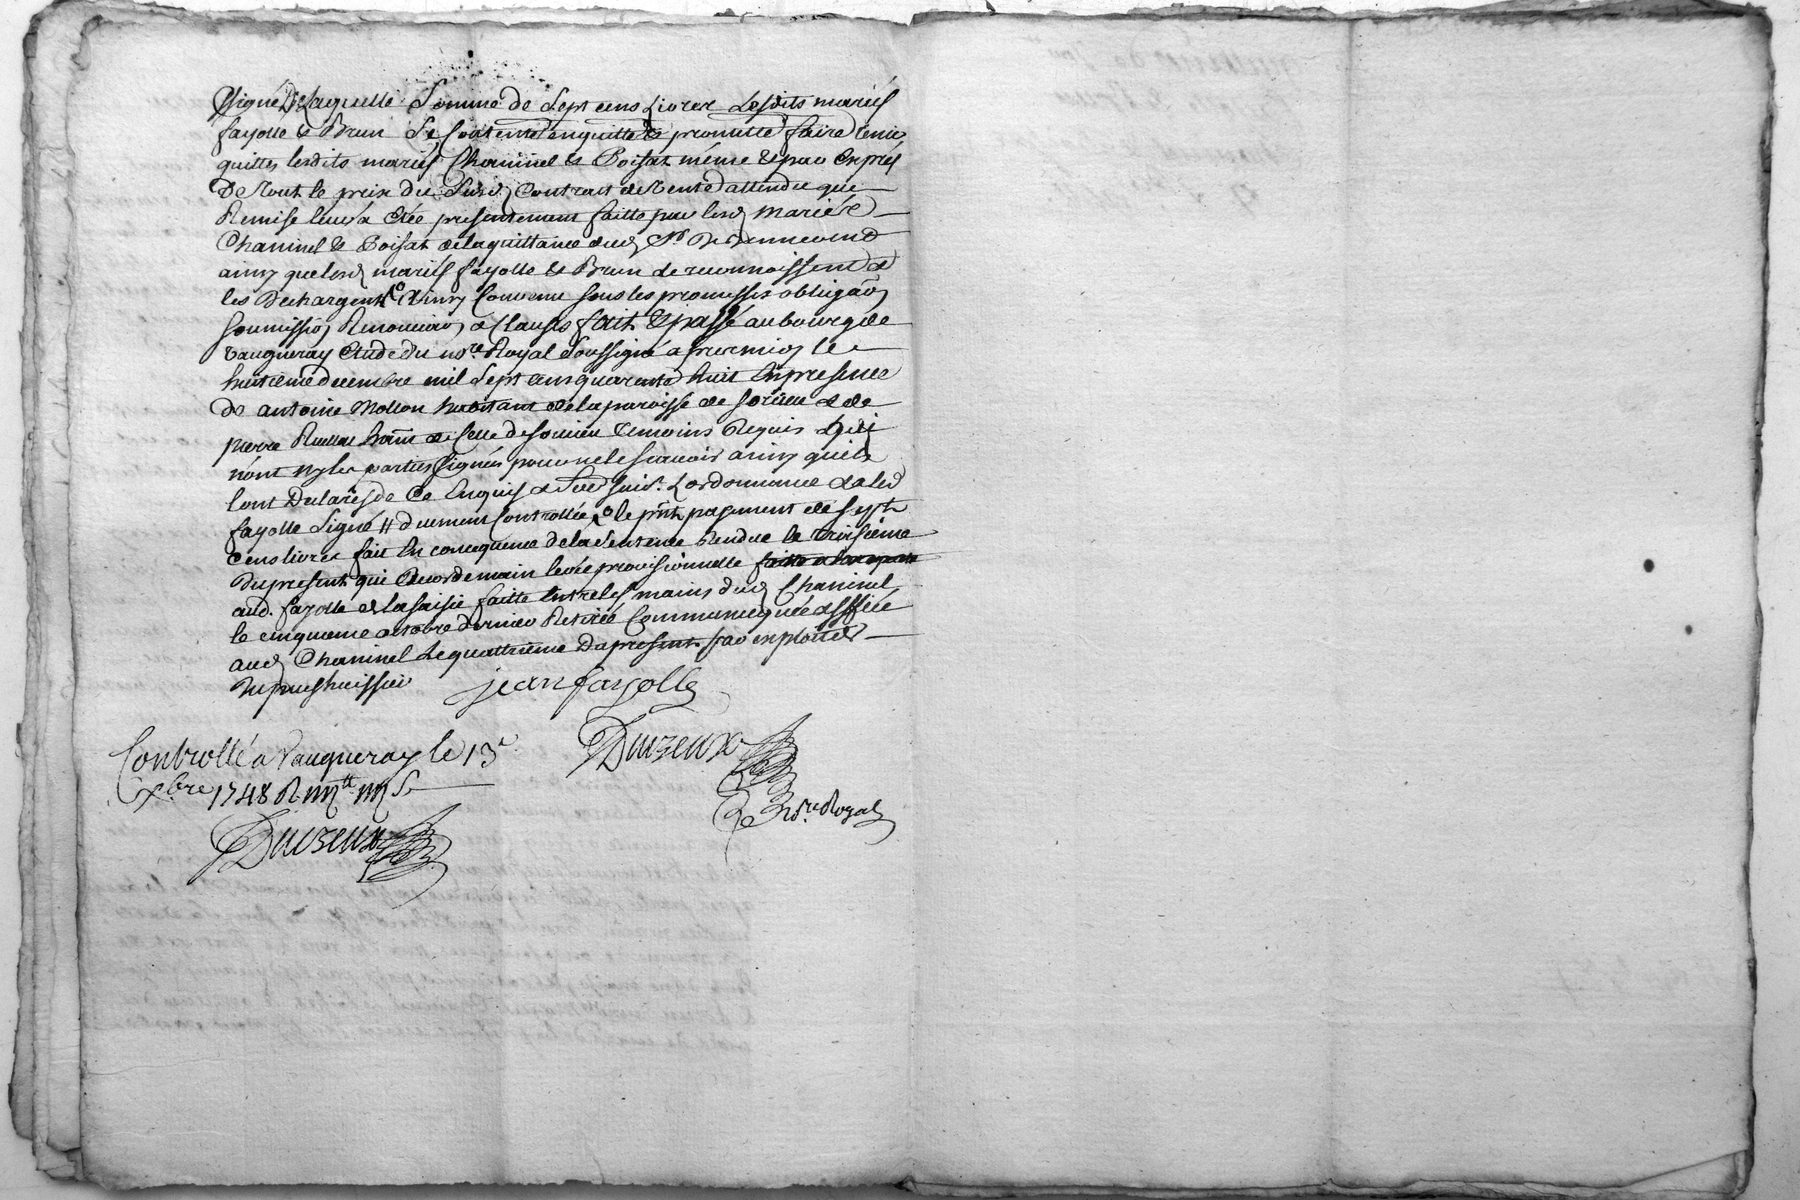 signé De laquelle Somme de Sept cens Livres Lesdits mariés
fayolle & Brun Se Contente enquitte & promette faire tenir
quittes lesdits mariés Chaminel & Poisat même & par Exprés
De tout le prix du Susd Contrat de Vente attendu que
Remise leur a été presentement faitte par lesd mariés
Chaminel & Poisat de la quittance dud Sr De
ainsy que lesd mariés fayolle & Brun le reconnoissent &
les Dechargent & Ainsy Convenu sous les promesses obligaõn
Soumission Renonciaõn & Clauses fait & passé au bourg de
Vaugneray Etude du nore Royal Soussigné apres midy le
huitieme decembre mil Sept cens quarante huit En presence
de antoine Mollon habitant de la paroisse de & de
pierre habt de Celle de Temoins Requis qui
n'ont ny les parties Signés pour ne le scavoir ainsy quils
l'ont Declarés de Ce Enquis & Suivt Lordonnance & led
fayolle Signé // duement Controllée & le pñt payement de Sept
Cens livres fait En consequence de la Sentence Rendue le troisieme
Du present qui Accorde main levée provisionnelle
aud. fayolle de la saisie faitte Entre les mains dud Chaminel
le cinquieme octobre dernier Retirée Communiquée &
aud Chaminel Le quattrieme Du present par exploit de
huissier jean fayolle
Controllé a Vaugneray le 13e
Xbre 1748 R.
Duvzeux
Nore Royal
Duvzeux